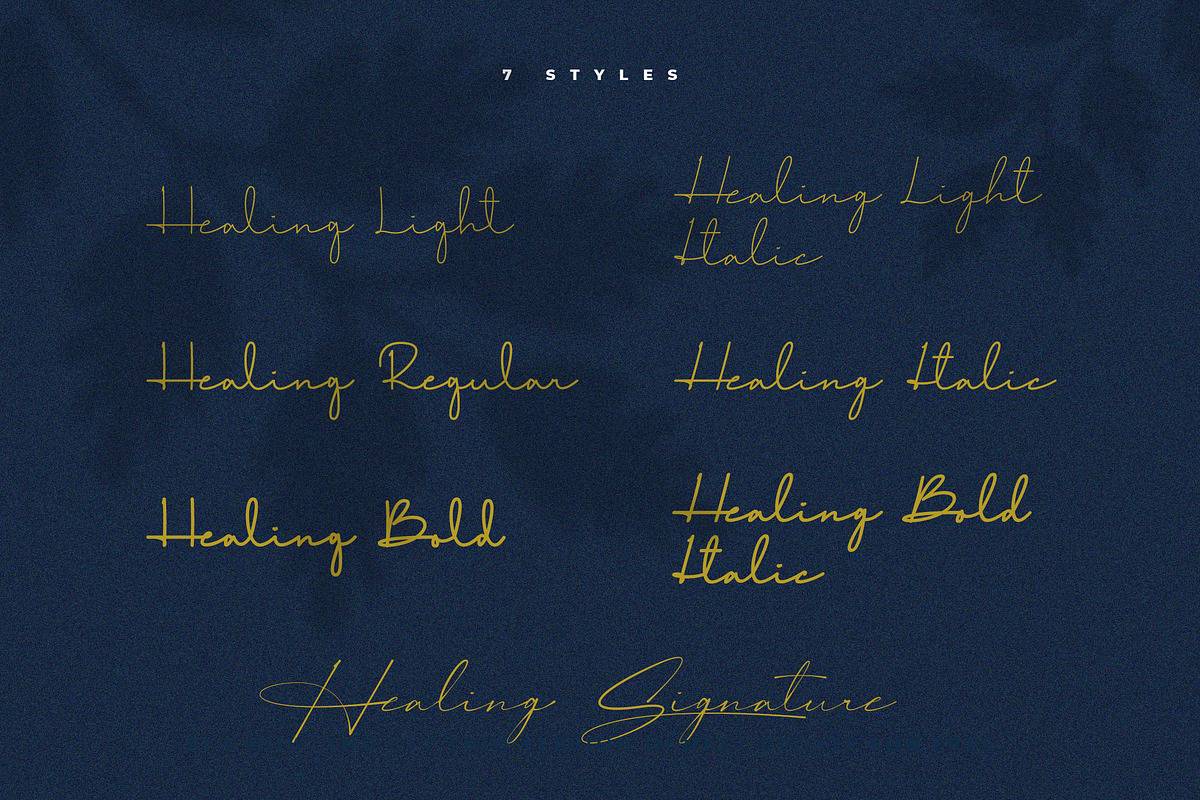 7 STYLES
Healing Light
Healing Light
Italic
Healing Regular
Healing Italic
Healing Bold
Healing Bold
Italic
Healing Signature